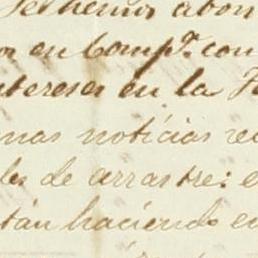 hemos abon
en Comp.ª con
ntereses en la F
mas noticias re
de arrastre: e
tán haciendo en